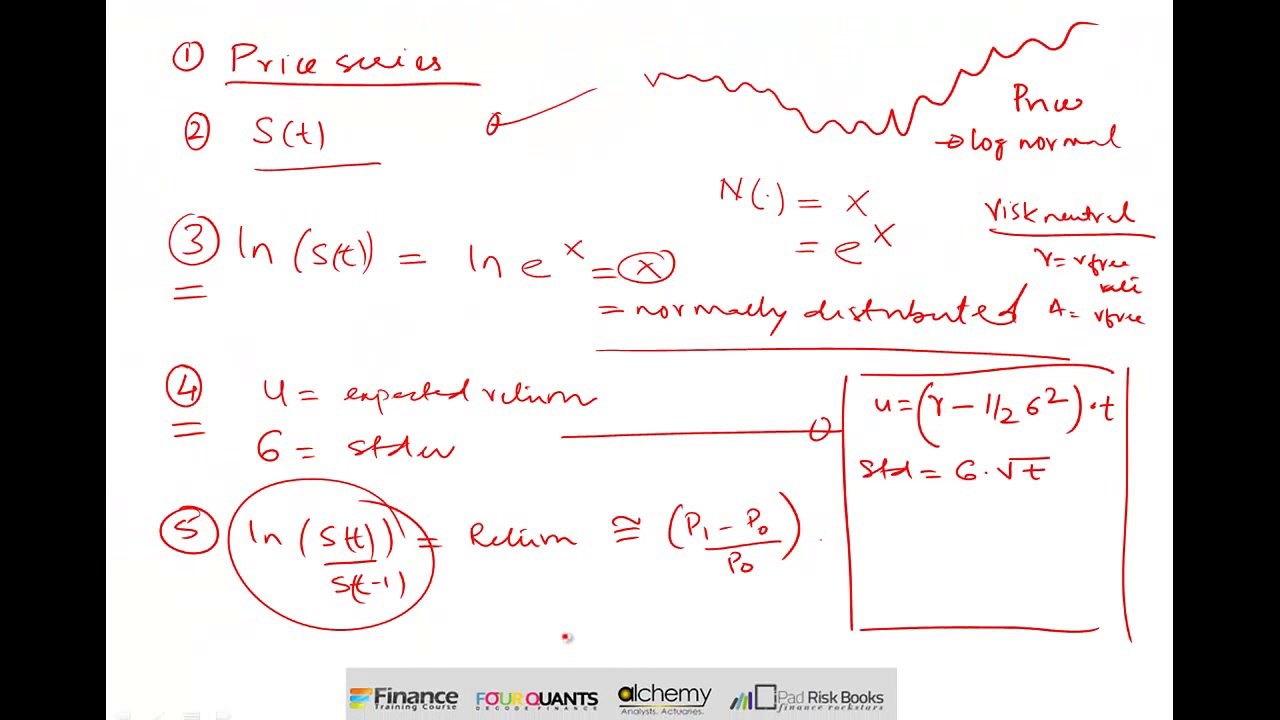 ① Price series
② S(t)
Price
→ log normal
N(·) = X
= e^X
③ ln (S(t)) = ln e^x = x
= normally distributed
risk neutral
r = r free
rate
μ = r free
④ u = expected return
σ = stdev
u = (r - 1/2 σ²)·t
std = σ·√t
⑤ ln (S(t)/S(t-1)) = Return ≅ (P₁ - P₀ / P₀)
Finance
Training Course
FOURQUANTS
DECODE FINANCE
alchemy
Analysts. Actuaries.
iPad Risk Books
finance rockstars